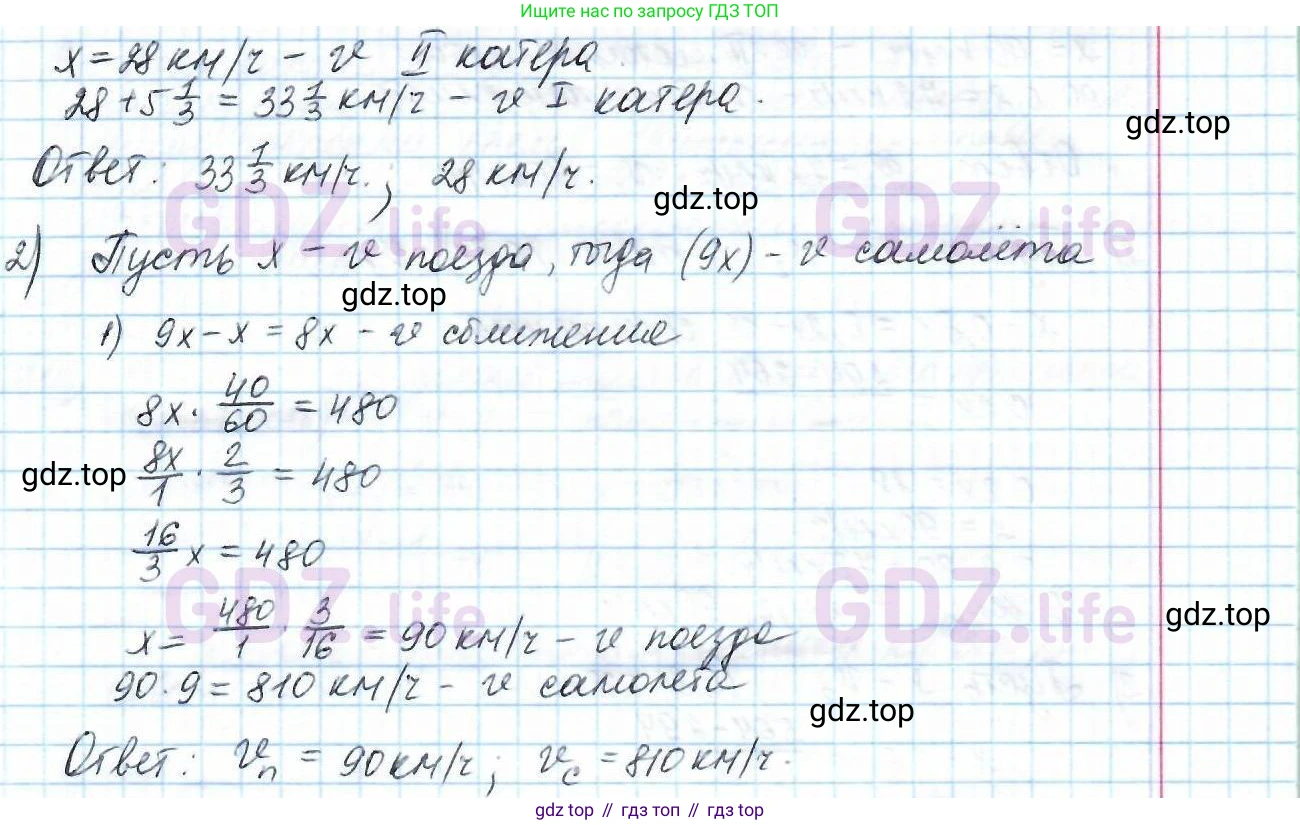 Ищите нас по запросу ГДЗ ТОП
x = 28 км/ч – v II катера.
28 + 5 1/3 = 33 1/3 км/ч – v I катера.
gdz.top
Ответ: 33 1/3 км/ч.; 28 км/ч.
gdz.top
GDZ.life GDZ.life
2) Пусть x – v поезда, тогда (9x) – v самолёта
gdz.top
1) 9x – x = 8x – v сближения
8x · 40/60 = 480
gdz.top
8x/1 · 2/3 = 480
16/3 x = 480
GDZ.life GDZ.life
gdz.top
x = 480/1 · 3/16 = 90 км/ч – v поезда
90 · 9 = 810 км/ч – v самолёта
gdz.top
Ответ: vп = 90 км/ч; vс = 810 км/ч.
gdz top // гдз топ // gdz top